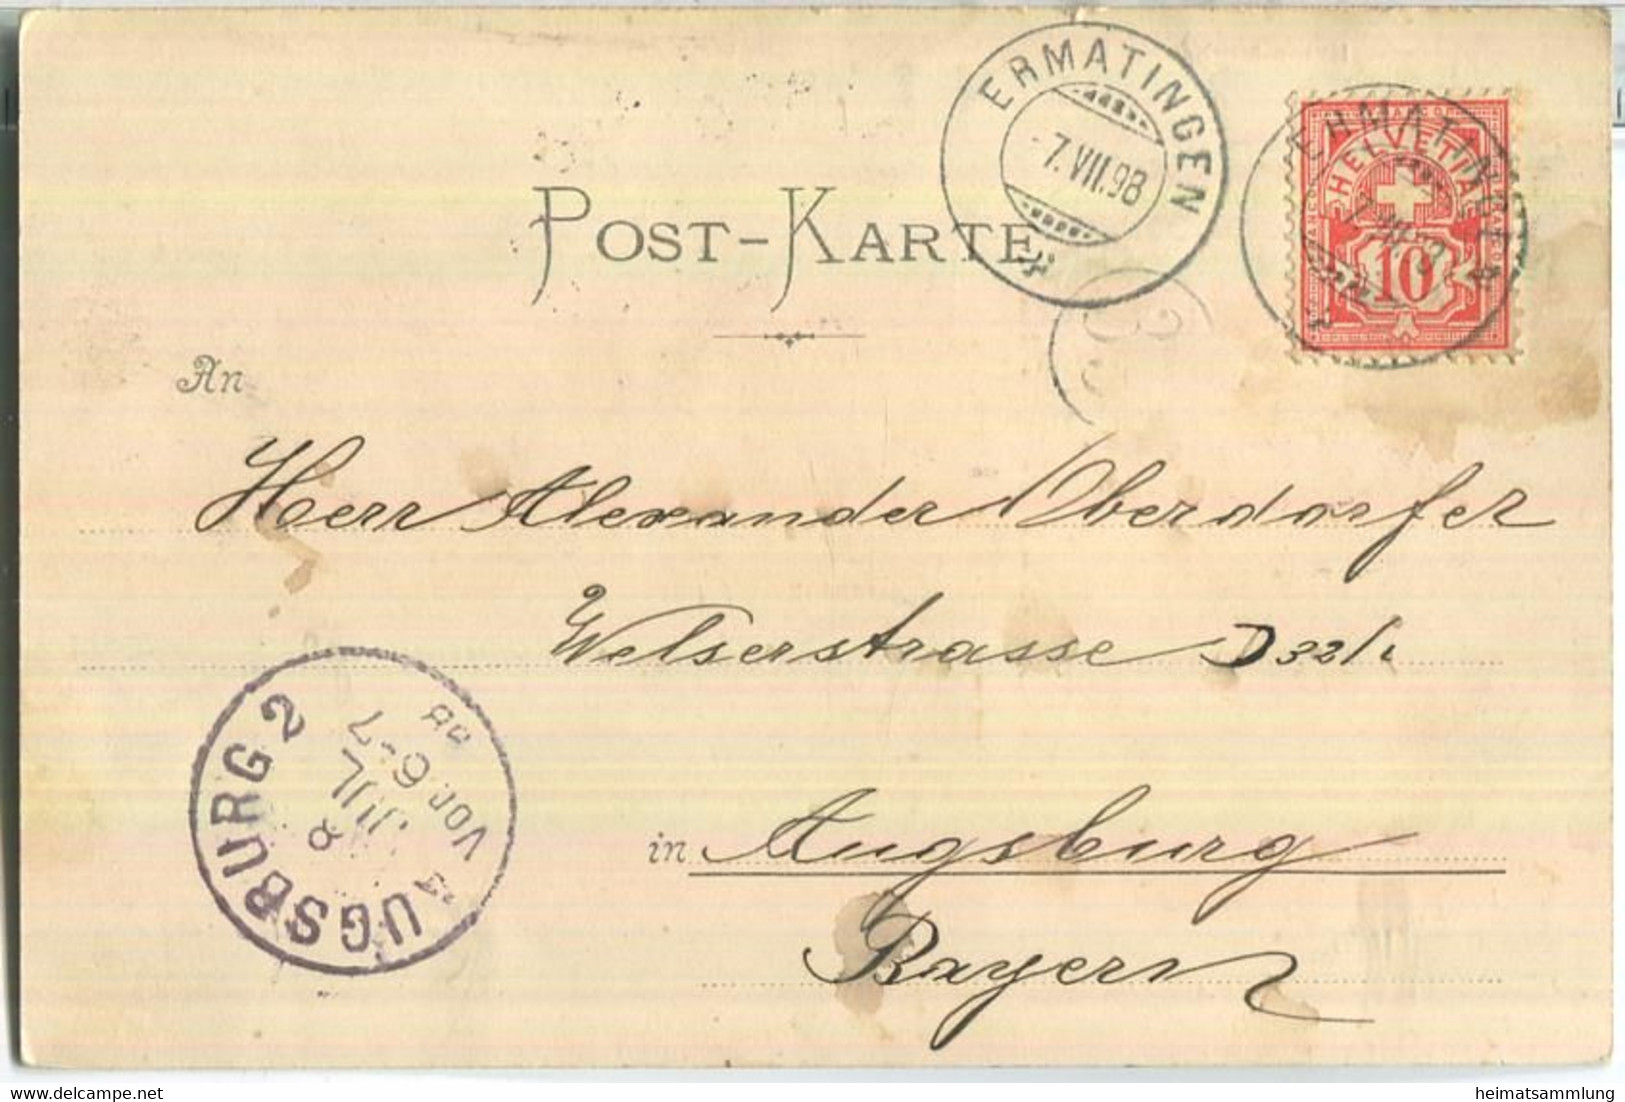 ERMATINGEN
7.VII.98
ERMATINGEN
HELVETIA
10
POST-KARTE
An
Herr Alexander Oberdorfer
Welserstrasse D 32/1
in Augsburg
Bayern
AUGSBURG 2
8
JUL
VOR 6-7
98
heimatsammlung